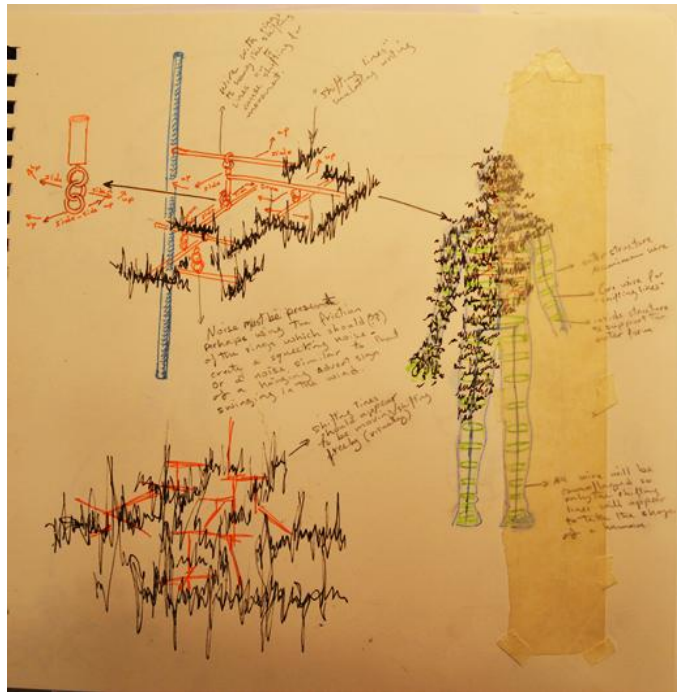 wire with rings
to swing the shifting
lines or to
cause shifting for
movement.
"shifting lines"
imitating writing
up
side
up
side
up
side
up
side
side
up
side
up
up
side
side
up
Noise must be present
perhaps using the friction
of the rings which should (??)
create a squeaking noise
or a noise similar to that
of a hanging advert sign
swinging in the wind.
Shifting lines
should appear
to be moving/shifting
freely (visually)
outer structure
aluminium wire
Core wire for
"shifting lines"
inside structure
to support the
outer form
All wire will be
camouflaged so
only the shifting
lines will appear
to take the shape
of a human